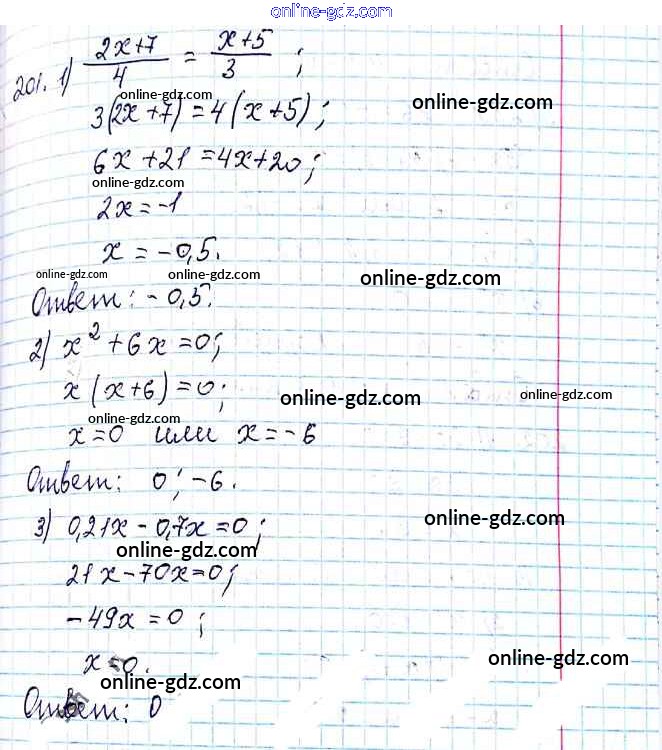 online-gdz.com
201. 1) (2x+7)/4 = (x+5)/3 ;
online-gdz.com
online-gdz.com
3(2x+7)=4(x+5);
6x+21=4x+20;
online-gdz.com
2x=-1
x=-0,5.
online-gdz.com
online-gdz.com
online-gdz.com
Ответ: -0,5.
2) x²+6x=0;
x(x+6)=0;
online-gdz.com
online-gdz.com
online-gdz.com
x=0 или x=-6
Ответ: 0; -6.
online-gdz.com
3) 0,21x-0,7x=0;
online-gdz.com
21x-70x=0;
-49x=0;
x=0.
online-gdz.com
online-gdz.com
Ответ: 0